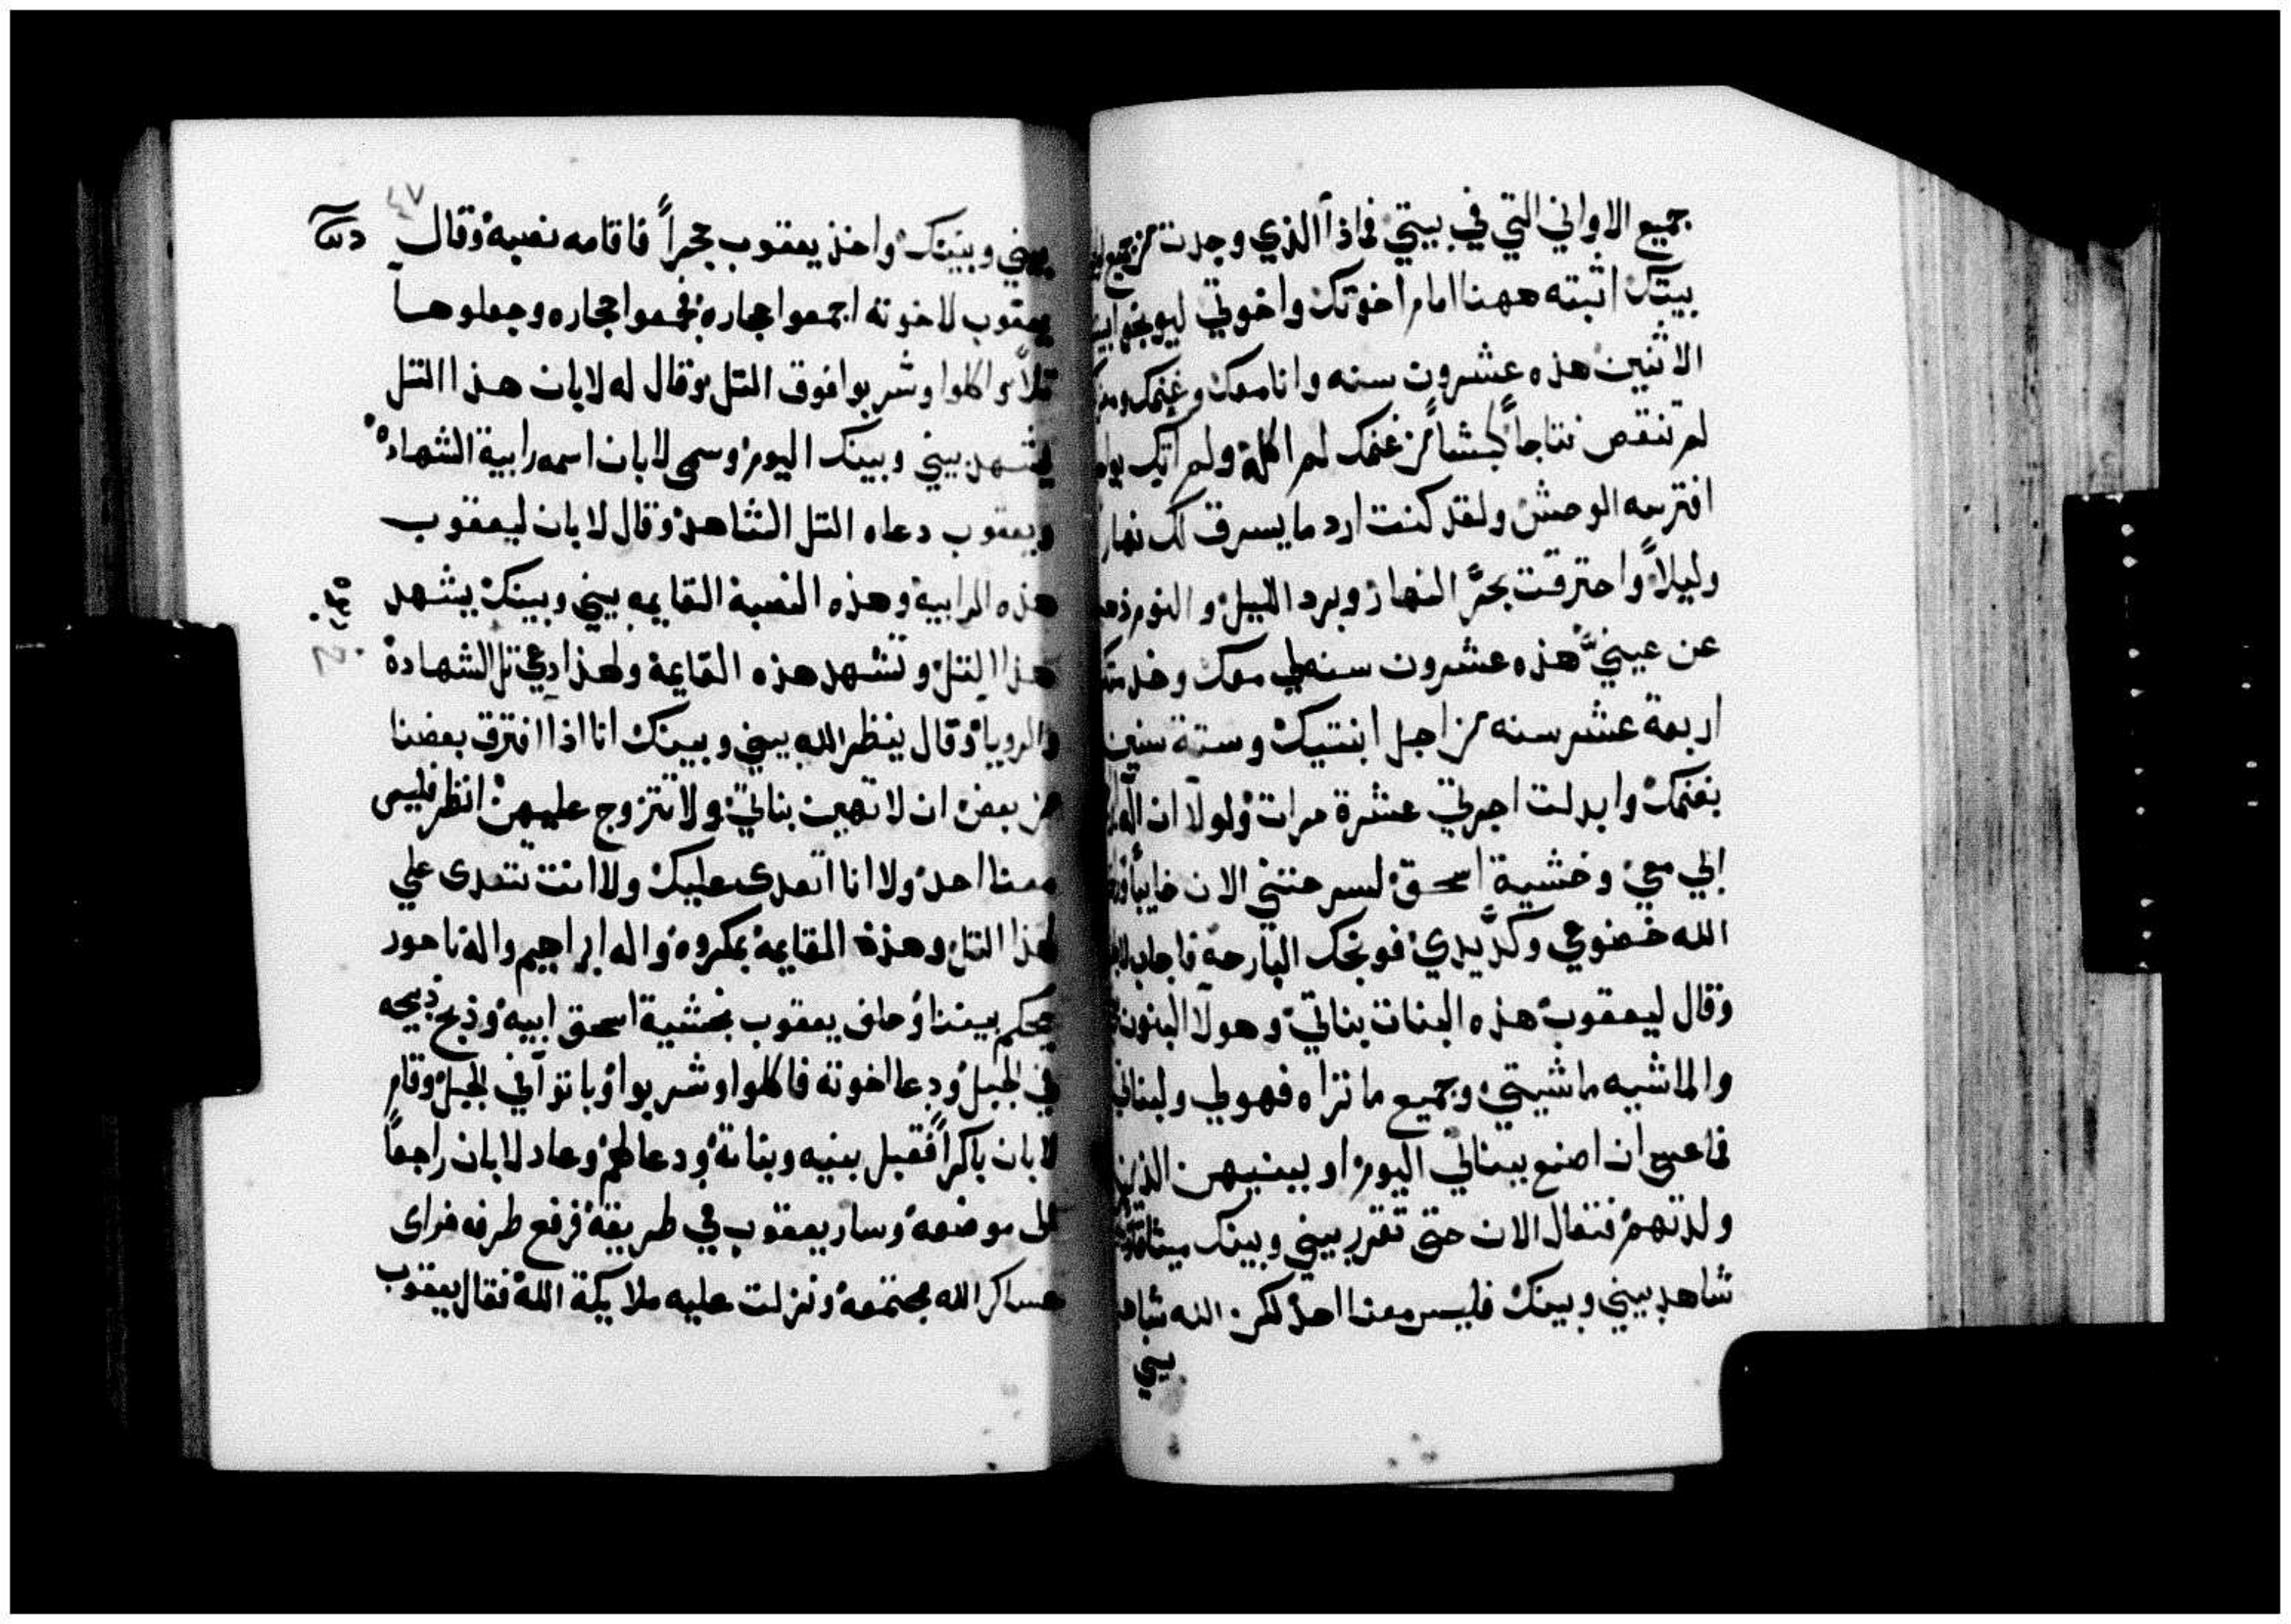 جميع الاواني التي في بيتي فماذا الذي وجدت من جميع
بيتك اثبته ههنا امام اخوتك واخوتي ليوبخوا
الاثنين هذه عشرون سنه وانا معك وغنمك
لم تنقص نتاجاً كبشاً من غنمك لم اكله ولم اتك
افترسه الوحش ولقد كنت ارد ما يسرق لك نهاراً
وليلاً واحترقت بحرّ النهار وبرد الليل والنوم
عن عينيّ هذه عشرون سنه لي معك وخدمتك
اربعة عشر سنه من اجل ابنتيك وستة سنين
بغنمك وابدلت اجرتي عشرة مرات ولولا ان اله
ابي معي وخشية اسحق لسرحتني الان خايباً
الله خضوعي وكدّ يدي فوبخك البارحه فاجاب
وقال ليعقوب هذه البنات بناتي وهولا البنون
والماشيه ماشيتي وجميع ما تراه فهو لي ولبناتي
فما عسى ان اصنع ببناتي اليوم او ببنيهن الذين
ولدتهم فتعال الان حتى نقرر بيني وبينك ميثاقاً
شاهد بيني وبينك فليس معنا احد لكن الله شاهد
بيني
٤٧
بيني وبينك واخذ يعقوب حجراً فاقامه نصبه وقال
يعقوب لاخوته اجمعوا حجاره فجمعوا حجاره وجعلوها
تلاً واكلوا وشربوا فوق التل وقال له لابان هذا التل
يشهد بيني وبينك اليوم وسمى لابان اسمه رابية الشهاده
ويعقوب دعاه التل الشاهد وقال لابان ليعقوب
هذه الرابية وهذه النصبة القايمه بيني وبينك يشهد
هذا التل وتشهد هذه القايمة ولهذا دعي تل الشهادة
والرويا وقال ينظر الله بيني وبينك انا اذا افترق بعضنا
من بعض ان لا تهين بناتي ولا تتزوج عليهن انظر فليس
معنا احد ولا انا اتعدى عليك ولا انت تتعدى علي
هذا التل وهذه القايمه بمكروه واله ابراهيم واله ناحور
يحكم بيننا وحلف يعقوب بخشية اسحق ابيه وذبح ذبيحه
في الجبل ودعا اخوته فاكلوا وشربوا وباتوا في الجبل وقام
لابان باكراً فقبل بنيه وبناته ودعا لهم وعاد لابان راجعاً
الى موضعه وسار يعقوب في طريقه فرفع طرفه فراى
عساكر الله مجتمعه ونزلت عليه ملايكة الله فقال يعقوب